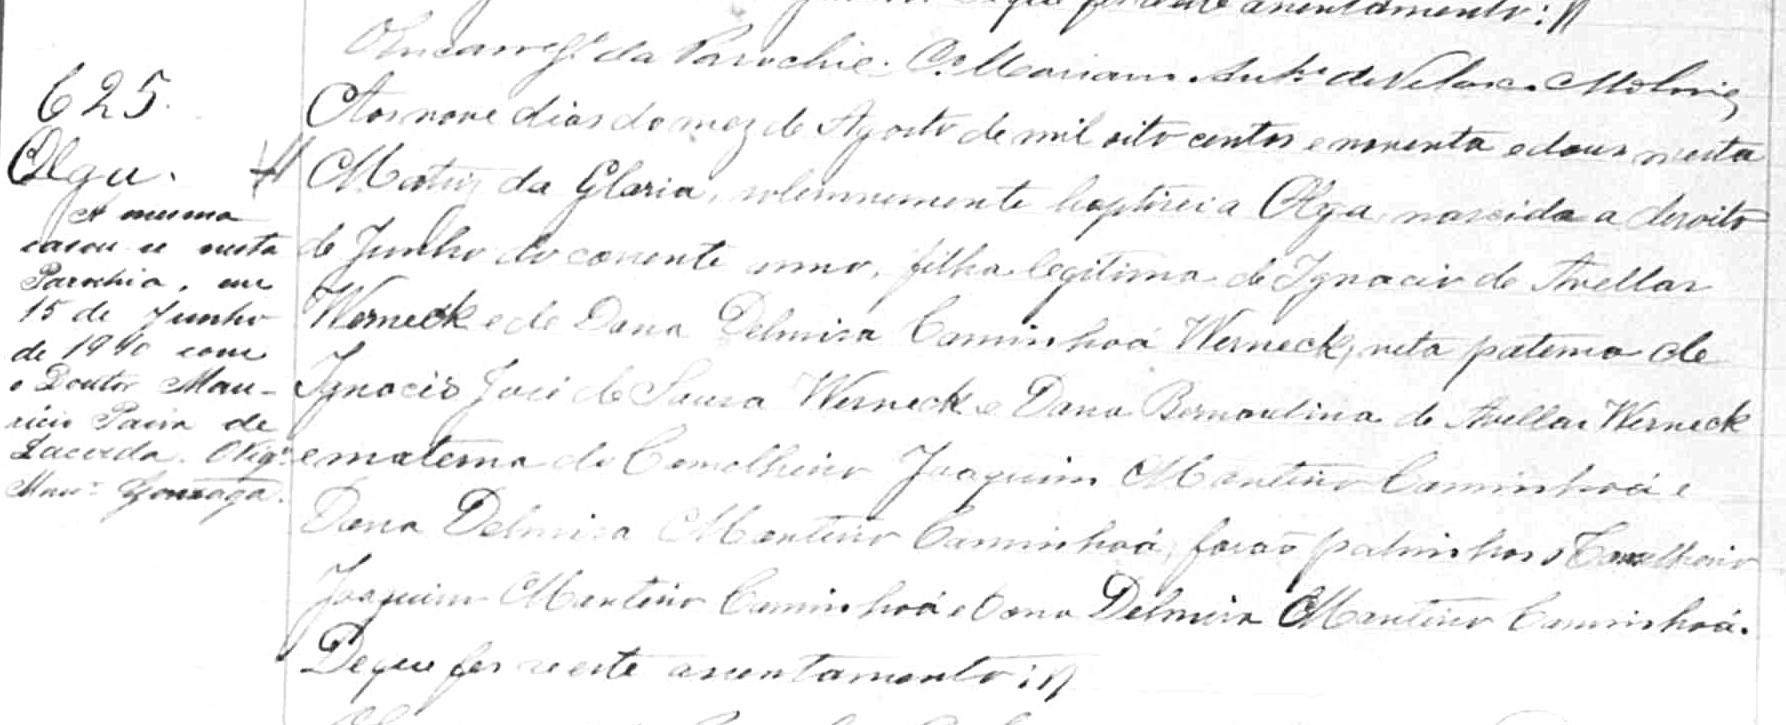 De que fes se este assentamento://
Encarreg.º da Parochia. C. Mariano Ant.º de Velasco Molina
625.
Olga.
A mesma
casou-se nesta
Parochia, em
15 de Junho
de 1940 com
o Doutor Mau-
ricio Paiva de
Lacerda.
Gonzaga.
Aos nove dias do mez de Agosto de mil oito centos e noventa e dous nesta
Matriz da Gloria, solemnemente baptisei a Olga, nascida a desoito
de Junho do corrente anno, filha legitima de Ignacio de Avellar
Werneck e de Dona Delmira Caminhoá Werneck, neta paterna de
Ignacio José de Sousa Werneck e Dona Bernardina de Avellar Werneck
e materna do Conselheiro Joaquim Monteiro Caminhoá e
Dona Delmira Monteiro Caminhoá, forão padrinhos o Conselheiro
Joaquim Monteiro Caminhoá e Dona Delmira Monteiro Caminhoá.
De que fes se este assentamento://